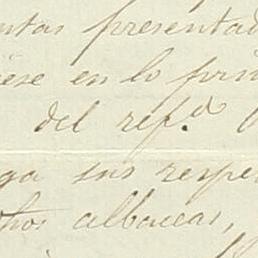 ntas presentad
ese en lo prin
del ref.º
ga sus respe
hos albaceas,